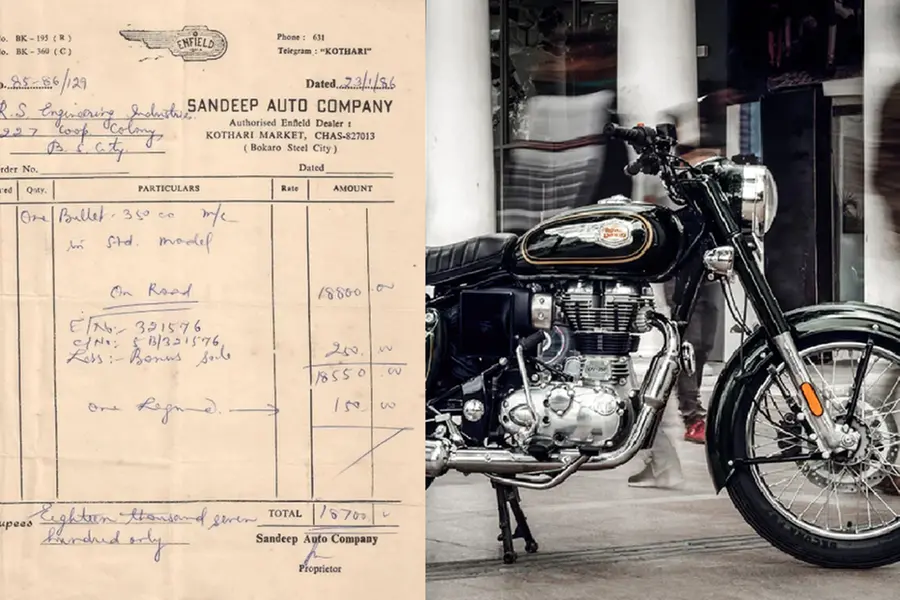 o. BK - 195 ( R )
o. BK - 360 ( C )
ENFIELD
Phone : 631
Telegram : "KOTHARI"
o. 85-86/129
Dated 23/1/86
R.S. Engineering Industries
227 Coop Colony
B. S. City
SANDEEP AUTO COMPANY
Authorised Enfield Dealer :
KOTHARI MARKET, CHAS-827013
( Bokaro Steel City )
rder No.
Dated
ed Qnty. PARTICULARS Rate AMOUNT
One Bullet 350 cc m/c
in Std. model
On Road 18800 00
E/No:- 321576
C/No:- 5B/321576
Less :- Bonus 250 00
18550 00
one Legguard 150 00
upees Eighteen thousand seven
hundred only
TOTAL 18700
Sandeep Auto Company
Proprietor